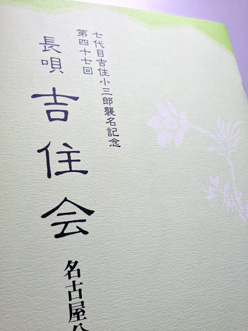 七代目吉住小三郎襲名記念
第四十七回
長唄 吉住会
名古屋公